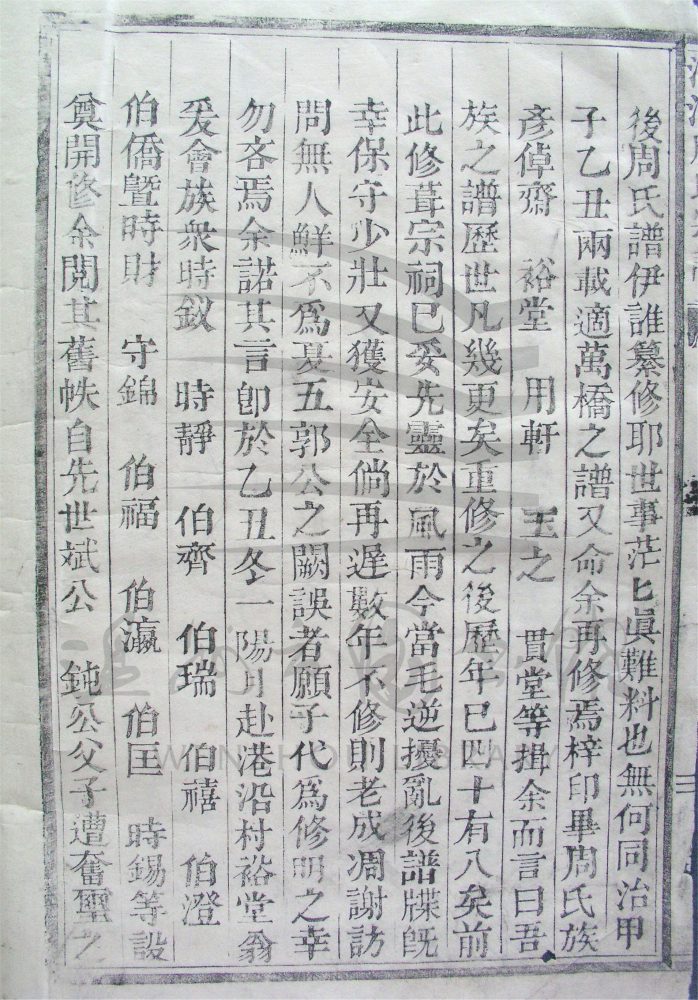 後周氏譜伊誰纂修耶世事茫匕眞難料也無何同治甲
子乙丑兩載適萬橋之譜又命余再修焉梓印畢周氏族
彥倬齋 裕堂 用軒 玉之 貫堂等揖余而言曰吾
族之譜歷世凡幾更矣重修之後歷年已四十有八矣前
此修葺宗祠已妥先靈於風雨今當毛逆擾亂後譜牒旣
幸保守少壯又獲安全倘再遲數年不修則老成凋謝訪
問無人鮮不爲夏五郭公之闕誤者願子代爲修明之幸
勿吝焉余諾其言卽於乙丑冬一陽月赴港沿村裕堂翁
爰會族衆時釵 時靜 伯齊 伯瑞 伯禧 伯澄
伯僑暨時財 守錦 伯福 伯瀛 伯匡 時錫等設
奠開修余閱其舊帙自先世斌公 鈍公父子遭奮壐之
WENZHOU LIBRARY